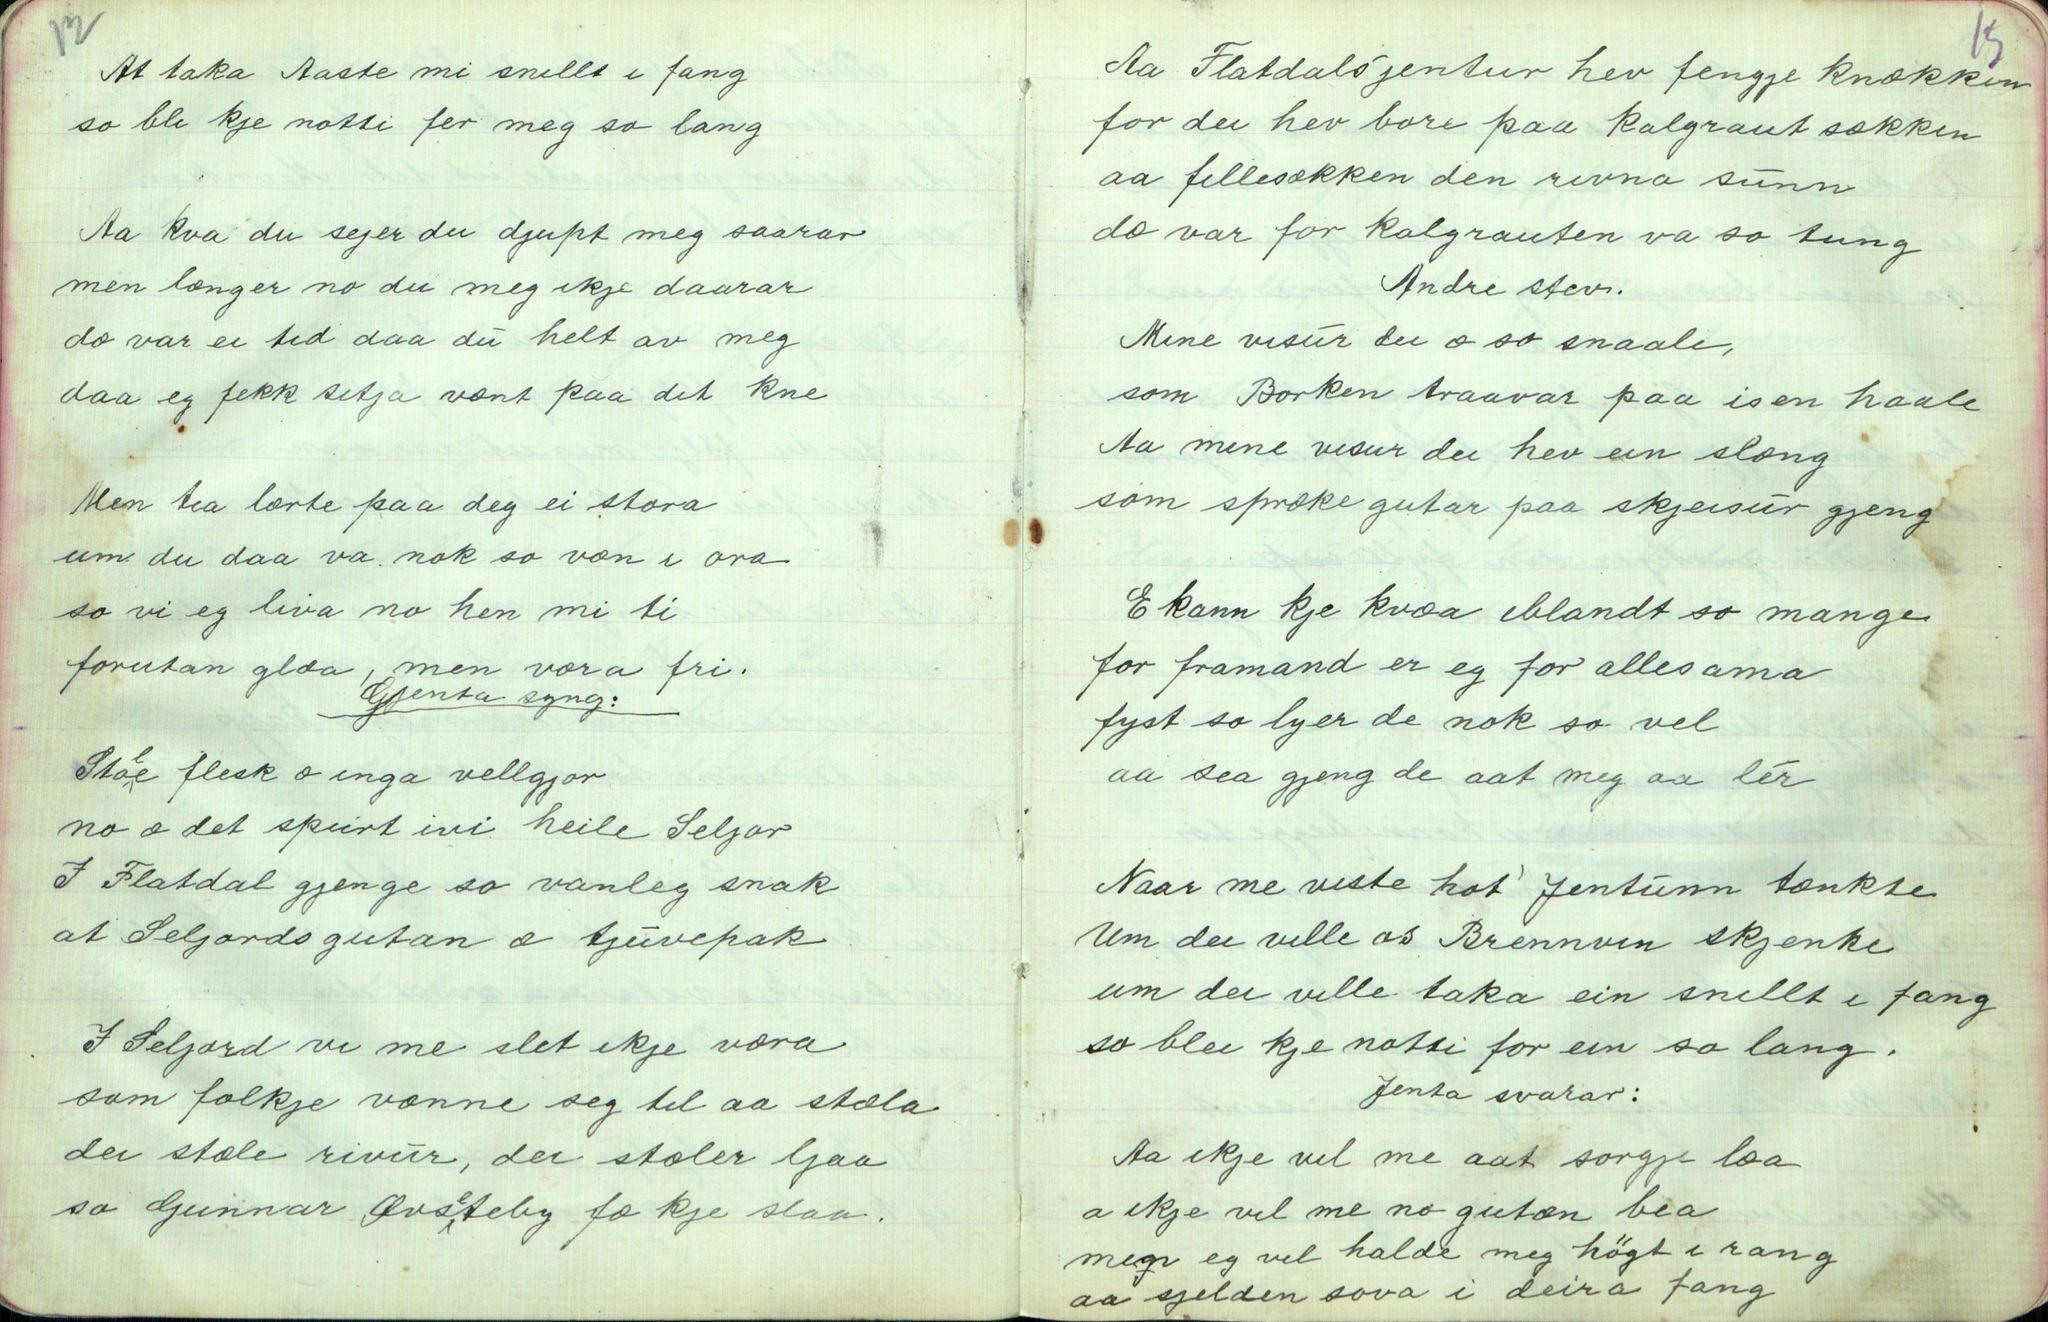 12
At taka Aaste mi snillt i fang
so bli kje notti fer meg so lang
Aa kva du sejer du djupt meg saarar
men længer no du meg ikje daarar
dæ var ei tid daa dū helt av meg
daa eg fekk sitja vænt paa dit kne
Men tia lærte paa deg ei stora
um du daa va nok so væn i ora
so vi eg liva no hen mi ti
forutan glæa, men væra fri.
Gjenta syng:
Stole flesk æ inga vellgjor
no æ det spurt ivi heile Seljor
I Flatdal gjenge so vanleg snak
at Seljordsgutan æ tjūvepak
I Seljord vi me slet ikje væra
som folkje vænne seg til aa stæla
dei stæle rivūr, dei stæler ljaa
so Gunnar Øvsteby fæ kje slaa.
13
Aa Flatdalsjentur hev fengje knækkin
for dei hev bore paa kalgraut sækkin
aa fillesækken den rivna sūnn
dæ var for kalgrauten va so tung
Andre stev.
Mine visūr dei æ so snaali,
som Borken traavar paa isen haale
Aa mine visur dei hev ein slæng
som spræke gutar paa skjeisūr gjeng
E kann kje kvæa iblandt so mange
for framand er eg for allesama
fyst so lyer de nok so vel
aa sea gjeng de aat meg aa lér
Naar me viste hot Jentūnn tænkte
Um dei ville os Brennvin skjenke
um dei ville taka ein snillt i fang
so blei kje notti for ein so lang.
Jenta svarar:
Aa ikje vil me aat sorgje læa
a ikje vil me no gutæn bea
men eg vil halde meg högt i rang
aa sjelden sova i deira fang